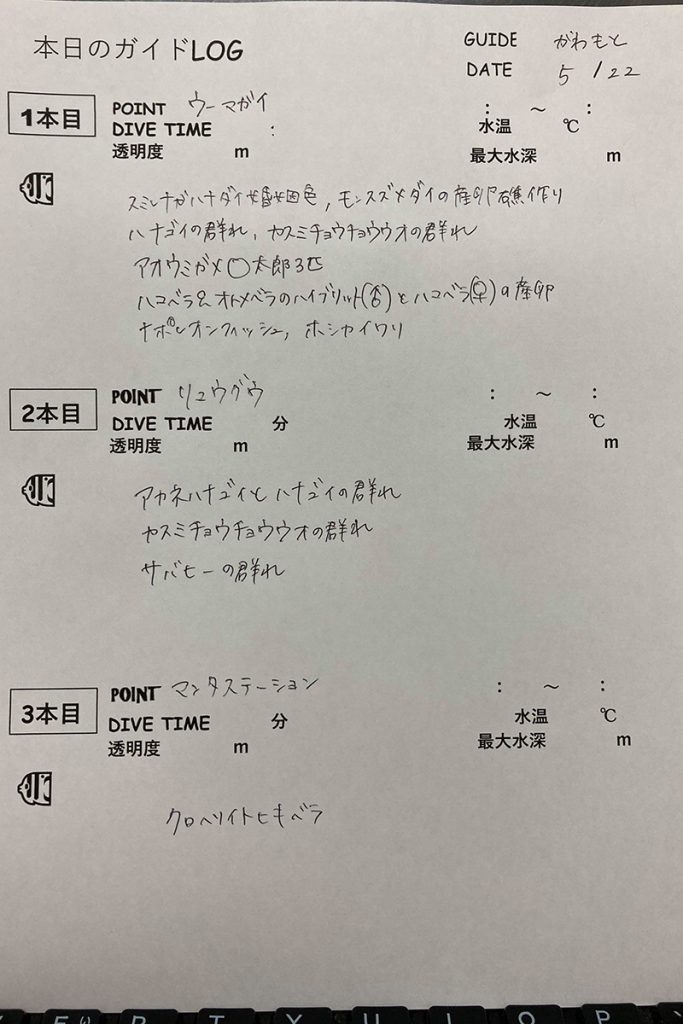 本日のガイドLOG
GUIDE かわもと
DATE 5 / 22
1本目
POINT ウーマガイ
: ～ :
DIVE TIME :
水温 ℃
透明度 m
最大水深 m
スミレナガハナダイ婚姻色, モンスズメダイの産卵礁作り
ハナゴイの群れ, カスミチョウチョウウオの群れ
アオウミガメ〇太郎3匹
ハコベラとオトメベラのハイブリット(♂)とハコベラ(♀)の産卵
ナポレオンフィッシュ, ホシカイワリ
2本目
POINT リュウグウ
: ～ :
DIVE TIME 分
水温 ℃
透明度 m
最大水深 m
アカネハナゴイとハナゴイの群れ
カスミチョウチョウウオの群れ
サバヒーの群れ
3本目
POINT マンタステーション
: ～ :
DIVE TIME 分
水温 ℃
透明度 m
最大水深 m
クロヘリイトヒキベラ
E R T Y U I O P